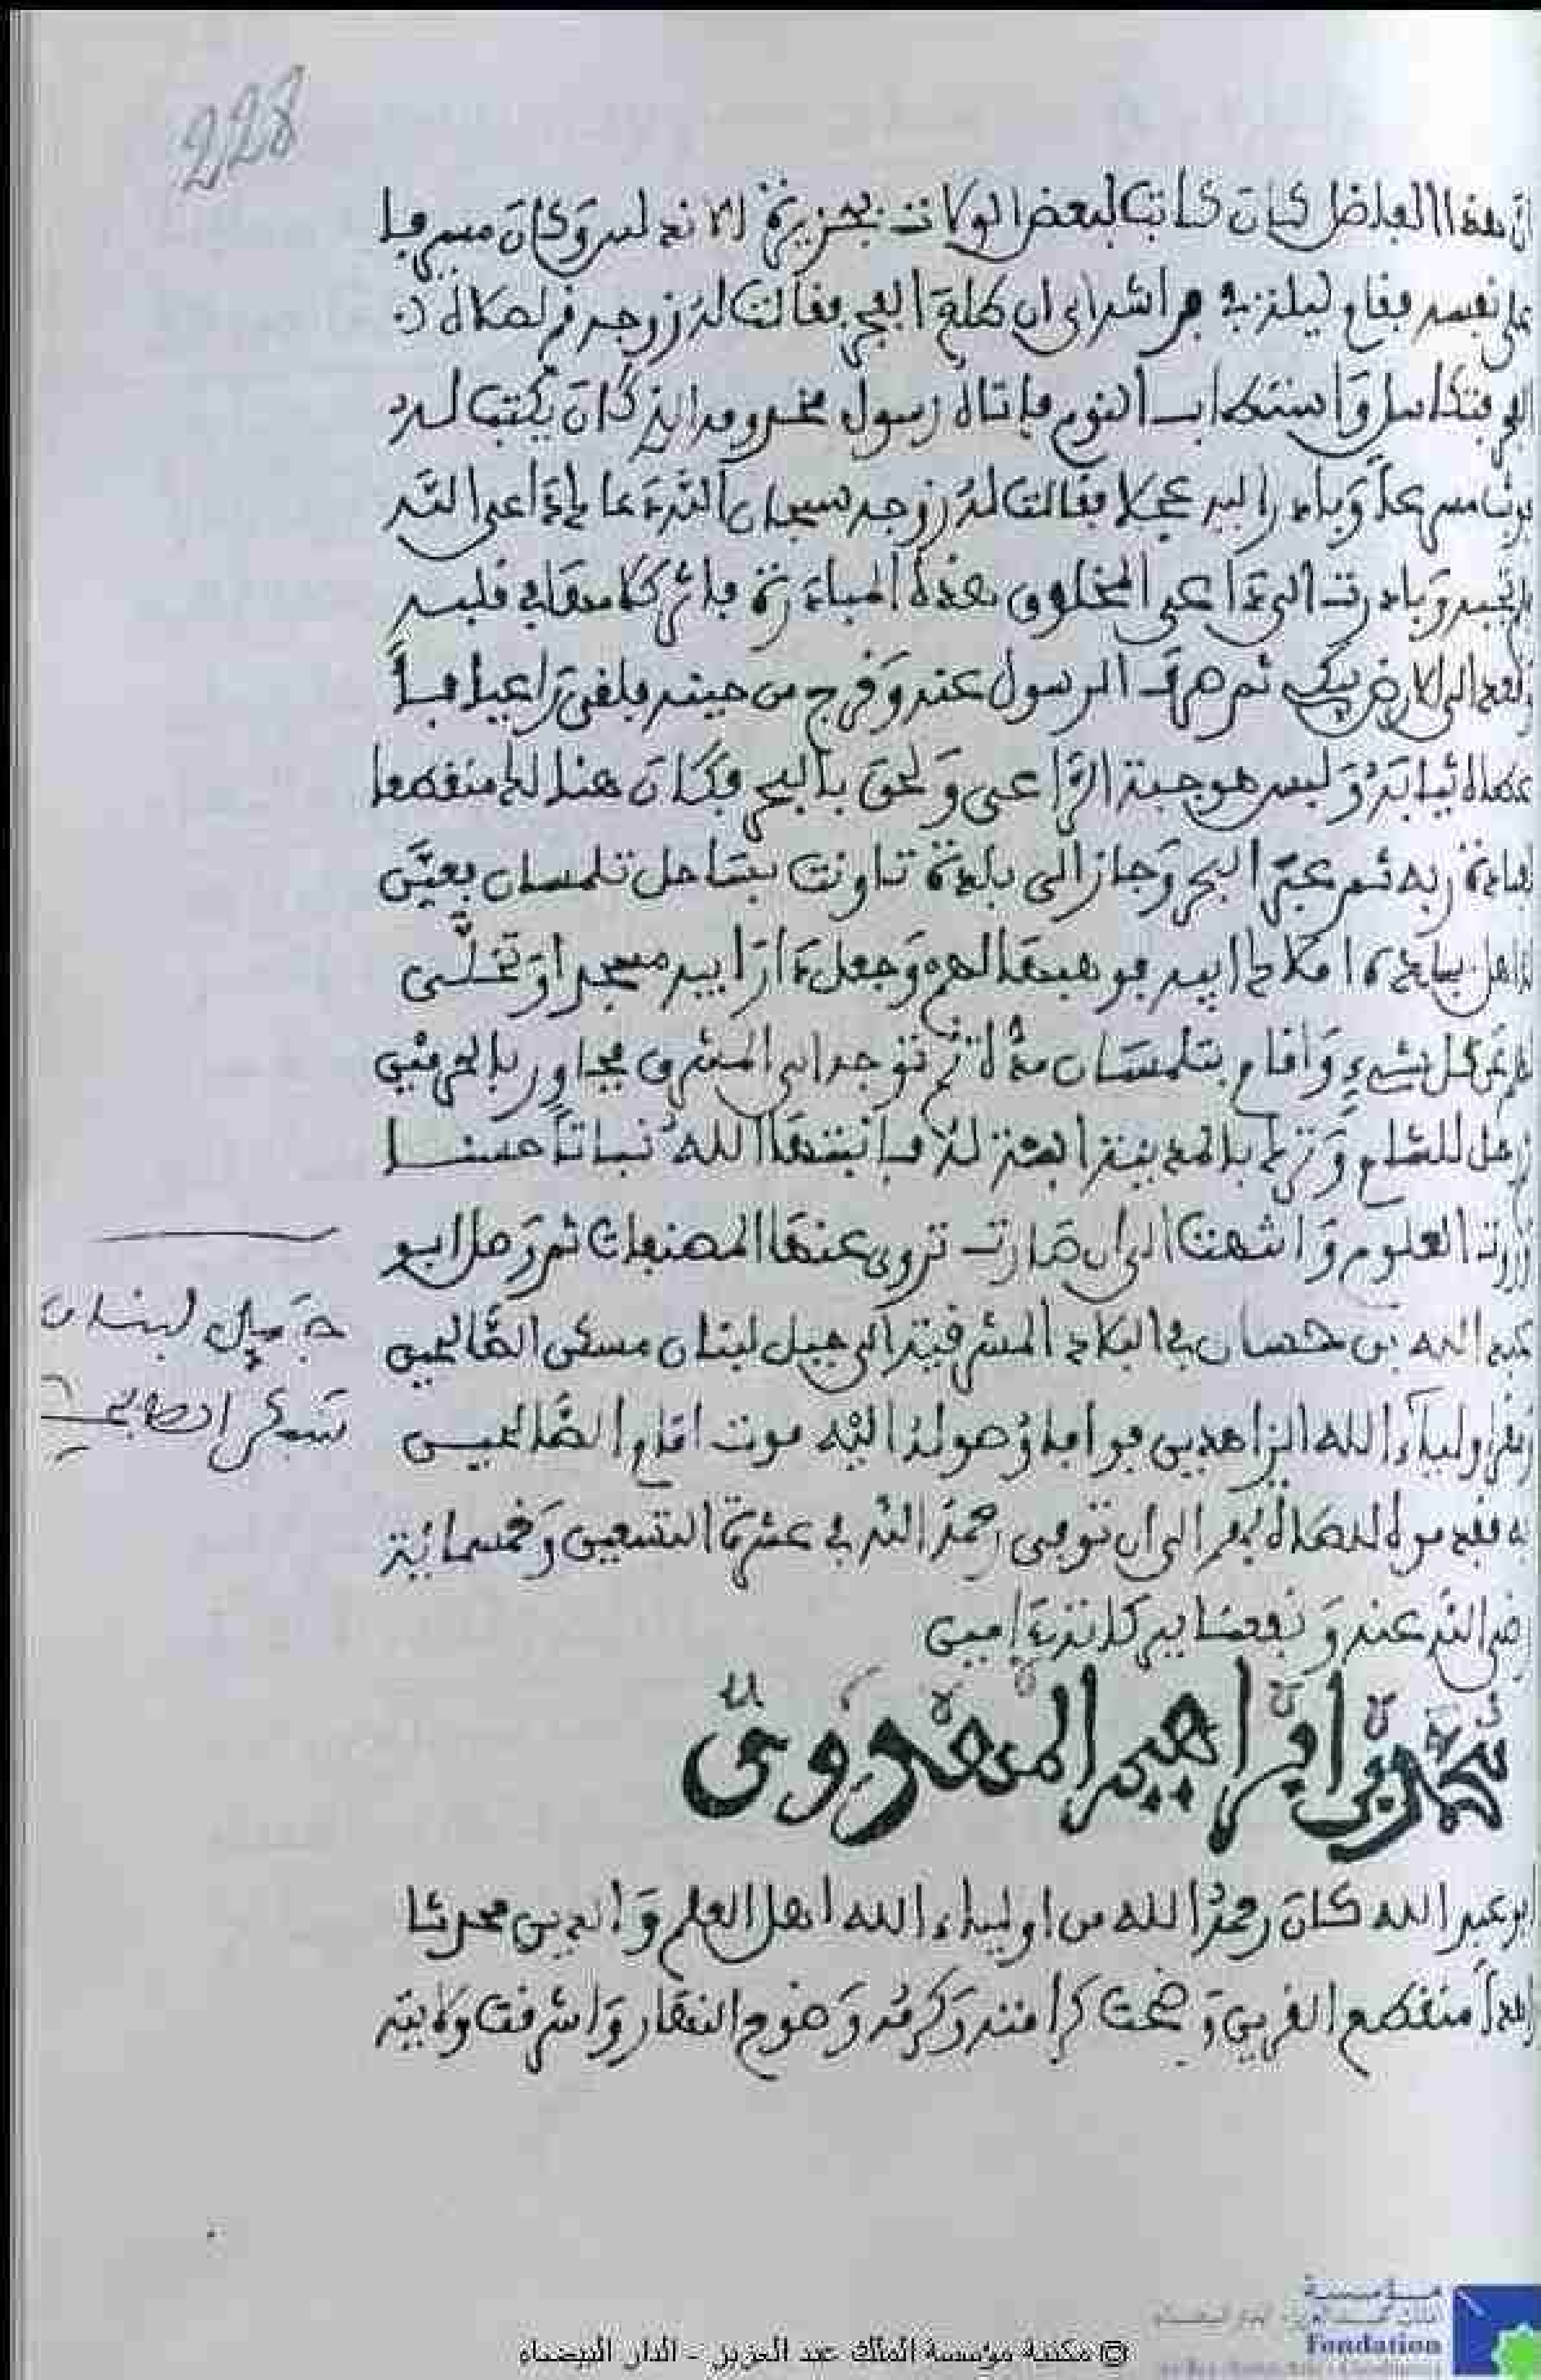 228
ان هذا الفاضل كان كاتبا لبعض الولات بجزيرة الاندلس وكان مسرفا
على نفسه فقام ليلة في فراشه الى ان طلع الفجر فقالت له زوجه قم لصلاة
فتكاسل واستطاب النوم فاتاه رسول مخدومه الذي كان يكتب له
مسرعا وبادر اليه عجلا فقالت له زوجه سبحان الله دعاك داعى الله
تجبه وبادرت الى داعى المخلوق هذه المبادرة فاثر كلامها في قلبه
الى الارض يبكي ثم صرف الرسول عنه وخرج من حينه فلقى راعيا
ثيابه ولبس هو جبة الراعى ولحق بالبحر فكان هنالك منقطعا
لعبادة ربه ثم عبر البحر وجاز الى بلدة تاونت بساحل تلمسان فعين
اهل بلده املاك ابيه فوهبها لهم وجعل دار ابيه مسجدا وتخلى
عن كل شيء واقام بتلمسان مدة ثم توجه الى المشرق فجاور بالحرمين
للشام وترك بالمدينة ابنة له فانبتها الله نباتا حسنا
العلوم واشهت الى ان صارت تروى عنها المصنفات ثم رحل ابو
عبد الله بن حسان في البلاد المشرقية الى جبل لبنان مسكن الصالحين
اولياء الله الزاهدين فوافا وصوله اليه موت امام الصالحين
فقدموه للصلاة بهم الى ان توفى رحمه الله في عشرة التسعين وخمسمائة
رضى الله عنه ونفعنا ببركاته امين
جبل لبنان
سكن الصالحين
محمد بن ابراهيم المهدوى
ابو عبد الله كان رحمه الله من اولياء الله اهل العلم والدين محدثا
زاهدا منقطع القرين وضحت كراماته وكرمه وضوح النهار واشرقت ولايته
© مكتبة مؤسسة الملك عبد العزيز - الدار البيضاء
مؤسسة
Fondation